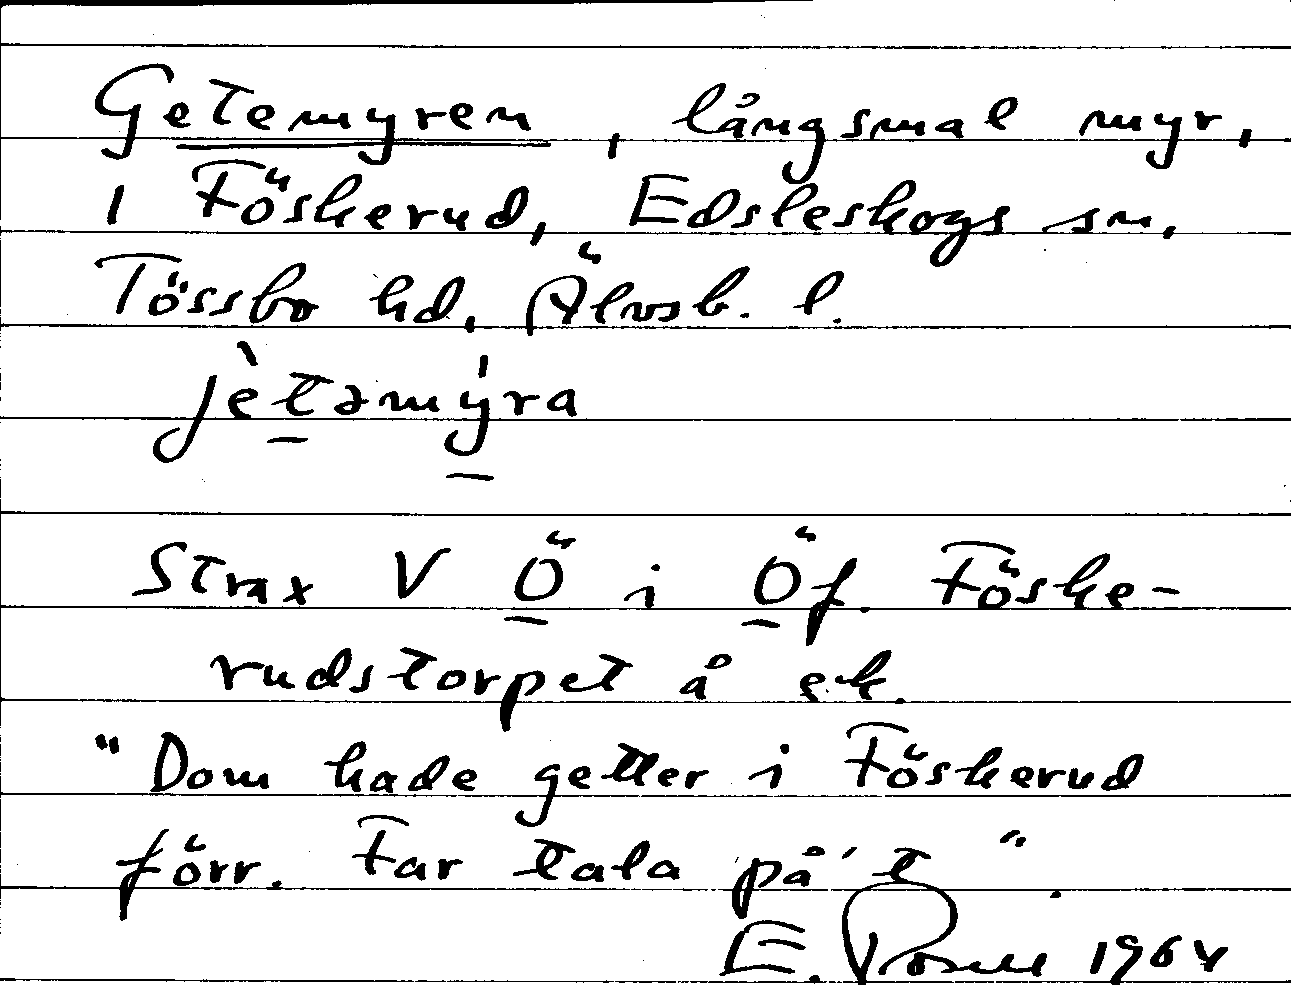 Getemyren, långsmal myr,
i Föskerud, Edsleskogs sn,
Tössbo hd, Älvsb. l.
jètəmýra
Strax V Ö i Öf. Föske-
rudstorpet å ek.
"Dom hade getter i Föskerud
förr. Far tala på't".
E. 1964